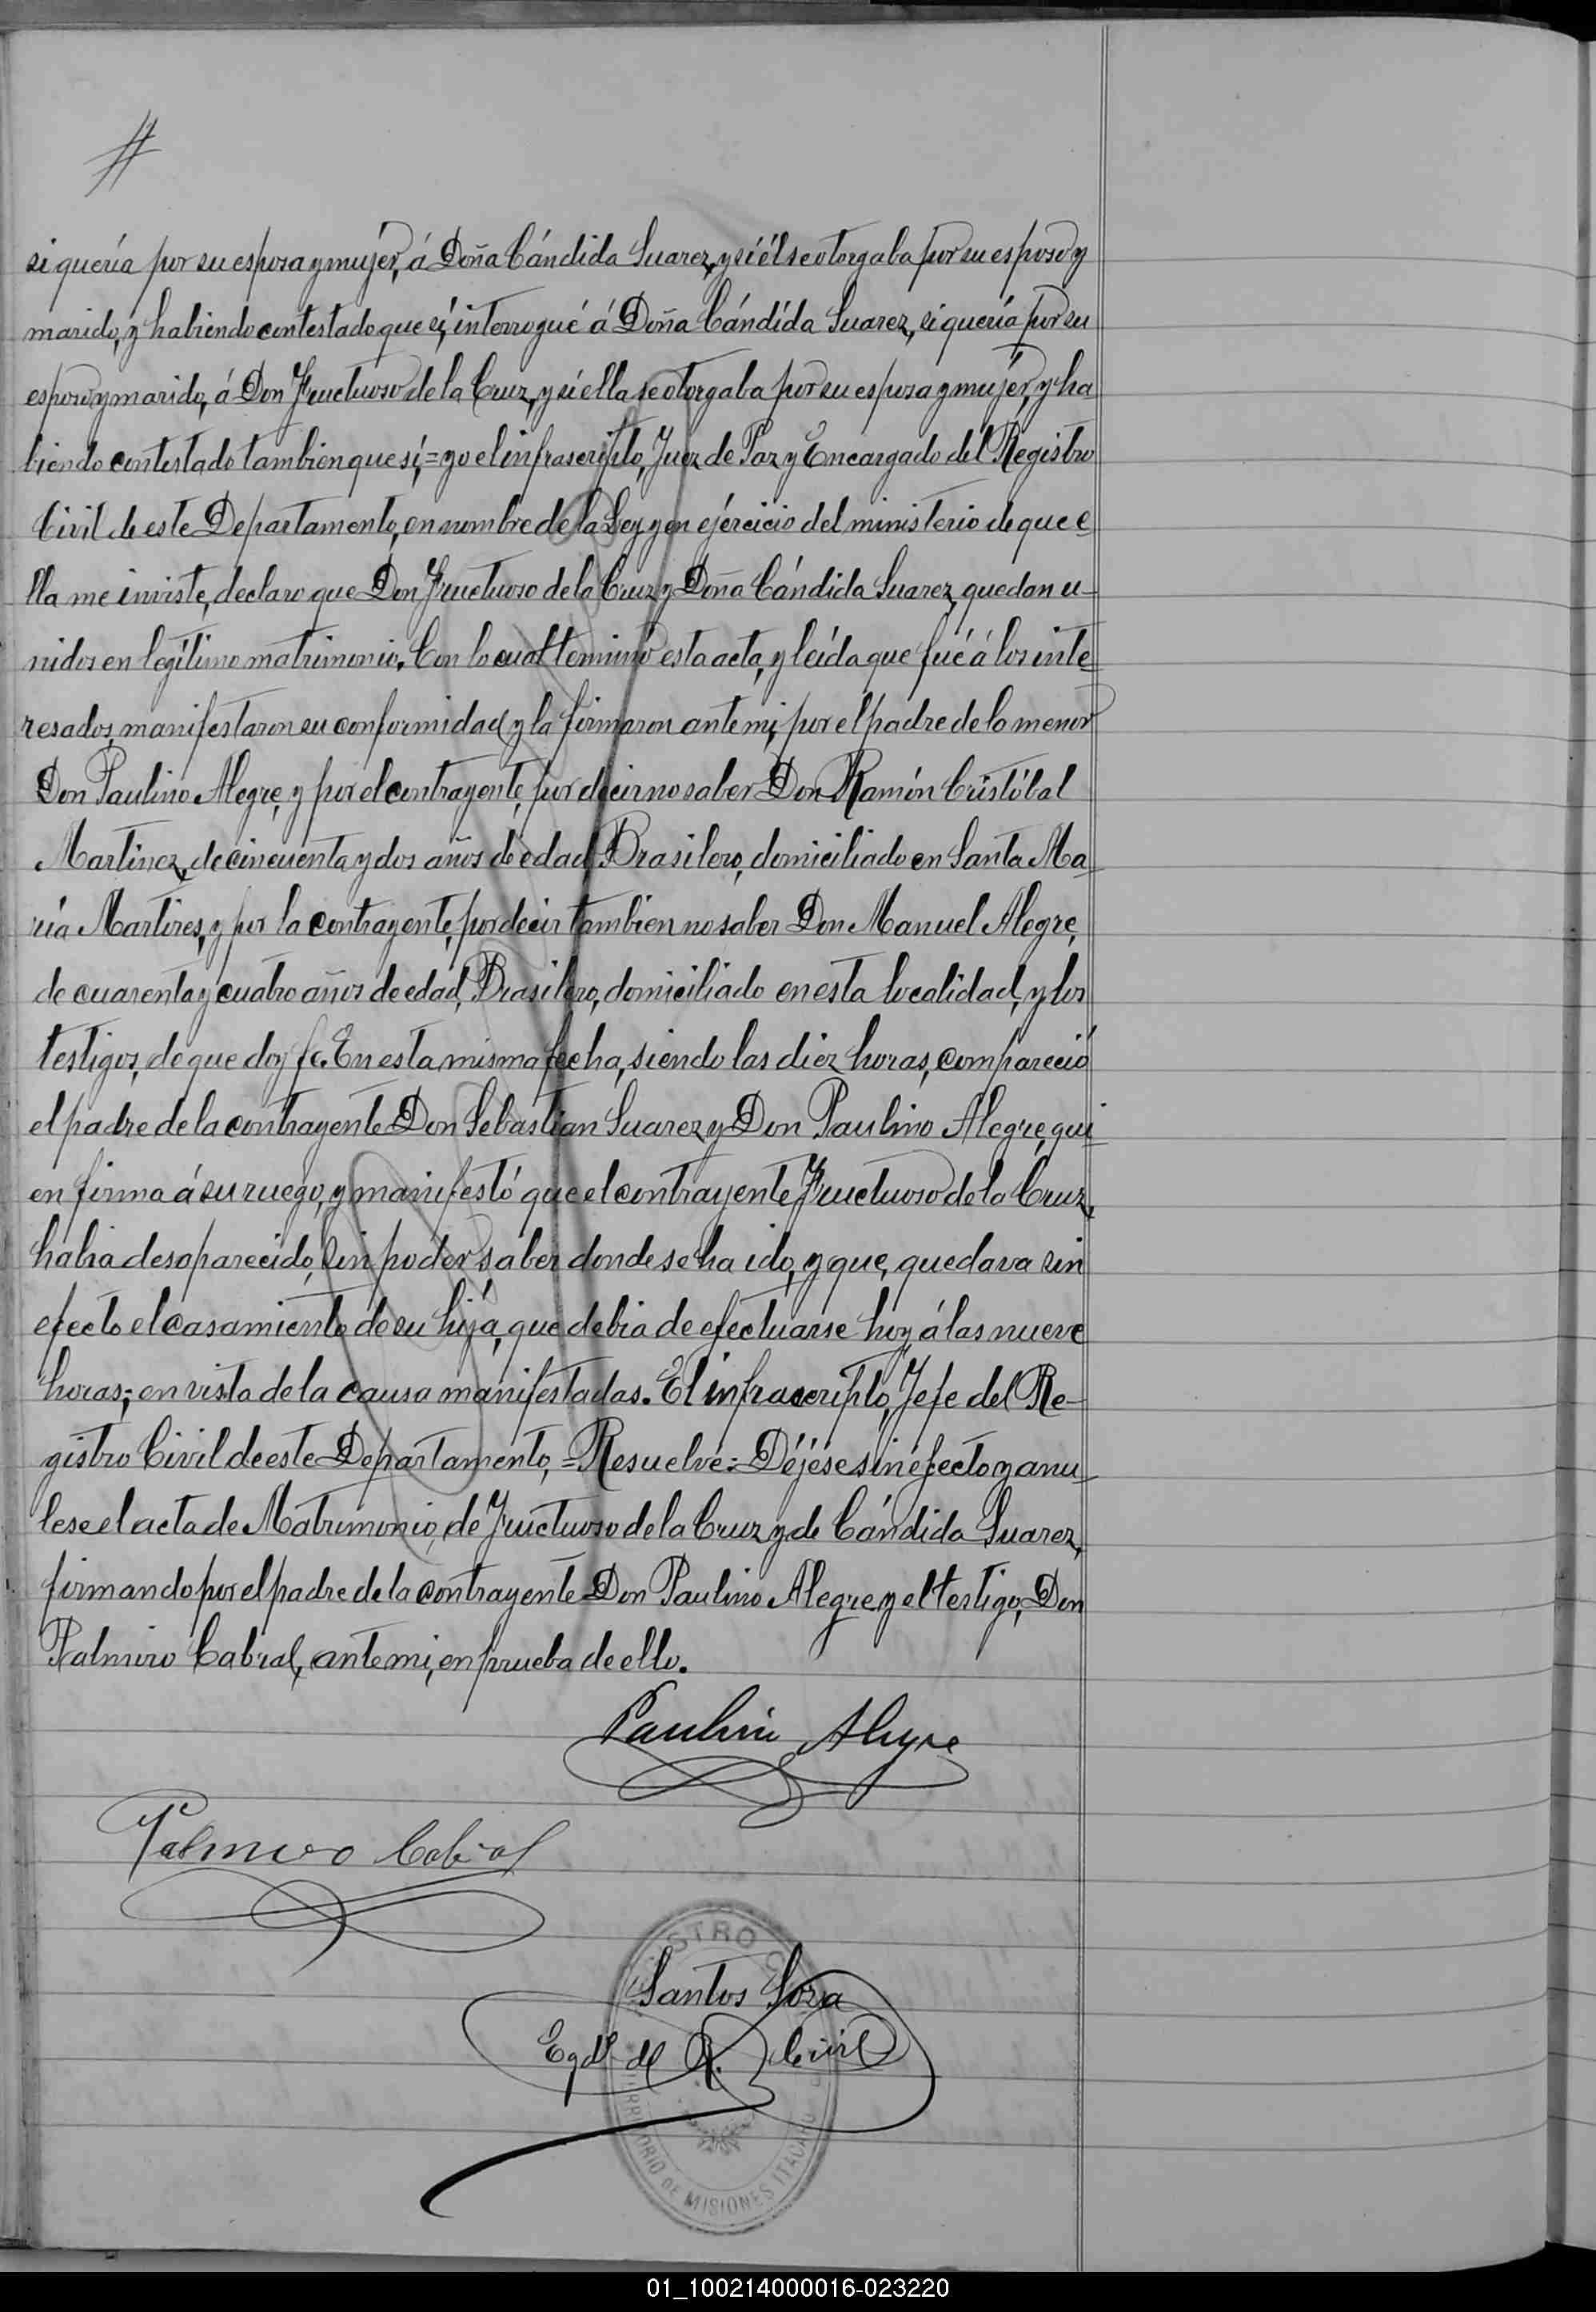 #
si quería por su esposa y mujér, á Doña Cándida Suarez, y si él se otorgaba por su esposo y
marido, y habiendo contestado que sí, interrogué á Doña Cándida Suarez, si quería por su
esposo y marido, á Don Fructuoso de la Cruz, y si ella se otorgaba por su esposa y mujér, y ha
biendo contestado tambien que sí,= yo el infrascripto, Juez de Paz y Encargado del Registro
Civil de este Departamento, en nombre de la Ley y en ejércicio del ministerio de que e
lla me inviste, declaro que Don Fructuoso de la Cruz y Doña Cándida Suarez, quedan u-
nidos en legítimo matrimonio. Con lo cual terminó esta acta, y leída que fué á los inte
resados, manifestaron su conformidad, y la firmaron ante mi, por el padre de la menor
Don Paulino Alegre, y por el contrayente, por decir no saber Don Ramón Cristóbal
Martinez, de cincuenta y dos años de edad, Brasilero, domiciliado en Santa Ma
ría Martires, y por la contrayente, por decir tambien no saber Don Manuel Alegre,
de cuarenta y cuatro años de edad, Brasilero, domiciliado en esta localidad, y los
testigos, de que doy fé. En esta misma fecha, siendo las diez horas, compareció
el padre de la contrayente Don Sebastian Suarez y Don Paulino Alegre, qui
en firma á su ruego, y manifestó que el contrayente Fructuoso de la Cruz,
habia desaparecido, sin poder saber donde se ha ido, y que, quedava sin
efecto el casamiento de su hija, que debia de efectuarse hoy á las nueve
horas; en vista de la causa manifestadas. El infrascripto, Jefe del Re-
gistro Civil de este Departamento, = Resuelve: Déjése sin efecto y anu
lese el acta de Matrimonio, de Fructuoso de la Cruz y de Cándida Suarez,
firmando por el padre de la contrayente Don Paulino Alegre y el testigo, Don
Palmiro Cabral, ante mi, en prueba de ello.
Paulino Alegre
Palmiro Cabral
Santos Soza
Egdo del R. Civil
TERRITORIO DE MISIONES
01_100214000016-023220